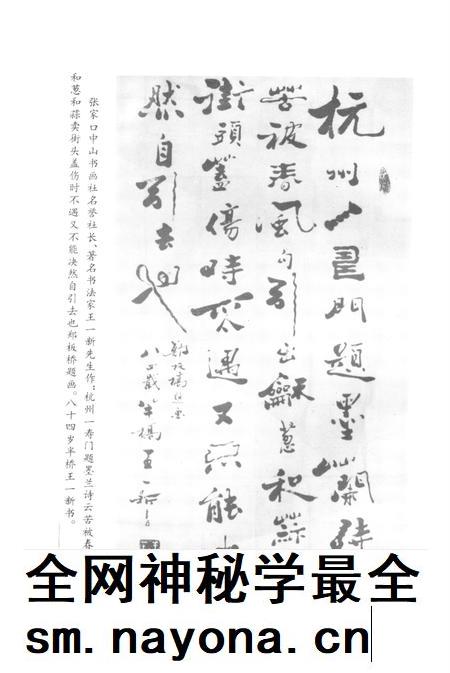 杭州門題墨蘭詩
苦被春風勾引出龢葱和蒜
街頭蓋傷時不遇又不能
然自引去也
八四歲半橋王一新
张家口中山书画社名誉社长、著名书法家王一新先生作：杭州一寿门题墨兰诗云苦被春
和葱和蒜卖街头盖伤时不遇又不能决然自引去也郑板桥题画。八十四岁半桥王一新书。
全网神秘学最全
sm.nayona.cn